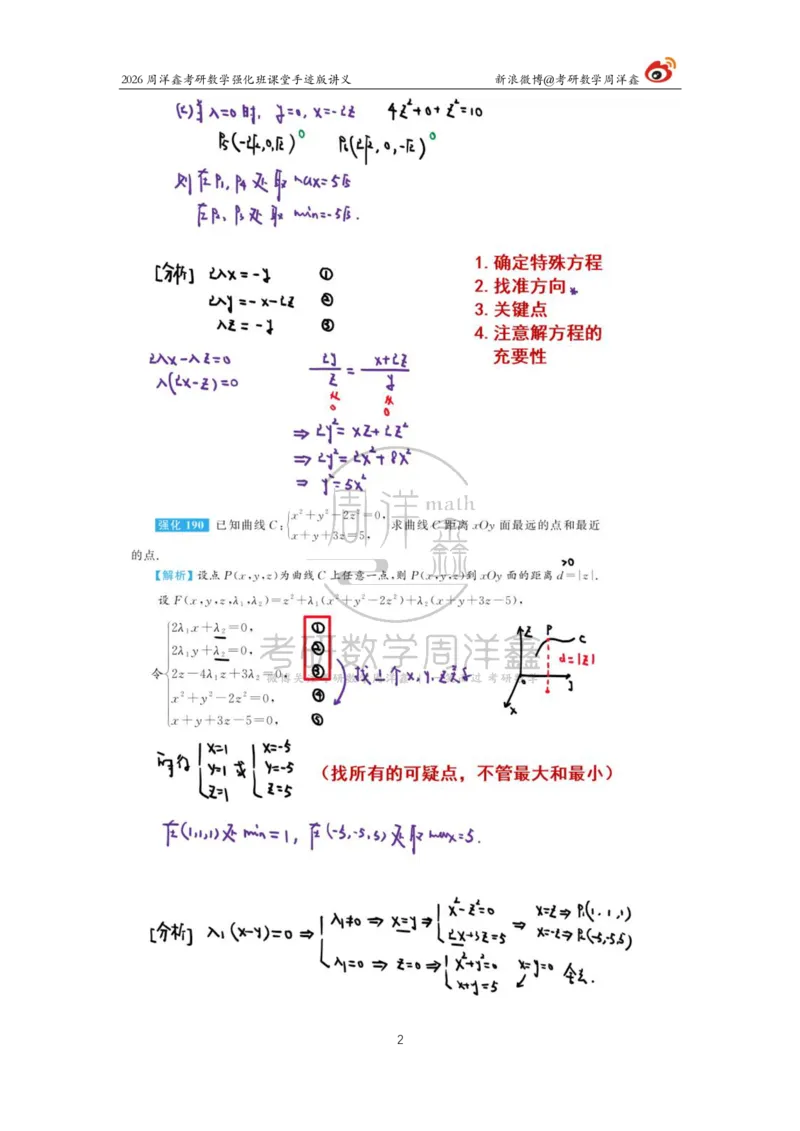 2026 周洋鑫考研数学强化班课堂手迹版讲义 新浪微博@考研数学周洋鑫
(c) 当 λ=0 时, y=0, x=-2z 4z²+0+z²=10
P₅(-2√2,0,√2)⁰ P₆(2√2,0,-√2)⁰
则 在P₁, P₄ 处 取 max=5√5
在P₂, P₃ 处 取 min=-5√5.
[分析] 2λx=-y ①
2λy=-x-2z ②
λz=-y ③
1. 确定特殊方程
2. 找准方向
3. 关键点
4. 注意解方程的
充要性
2λx-λz=0
λ(2x-z)=0
2y/z = (x+2z)/y
⇒ 2y²=xz+2z²
⇒ 2y²=2x²+8x²
⇒ y²=5x²
强化 190 已知曲线 C: { x²+y²-2z²=0, x+y+3z=5, 求曲线 C 距离 xOy 面最远的点和最近
的点.
【解析】设点 P(x,y,z)为曲线 C 上任意一点,则 P(x,y,z)到 xOy 面的距离 d=|z|.
≥0
设 F(x,y,z,λ₁,λ₂)=z²+λ₁(x²+y²-2z²)+λ₂(x+y+3z-5),
令
2λ₁x+λ₂=0, ①
2λ₁y+λ₂=0, ②
2z-4λ₁z+3λ₂=0, ③
x²+y²-2z²=0, ④
x+y+3z-5=0, ⑤
z P C
d=|z|
o y
x
周洋鑫 math
考研数学周洋鑫
可得 { x=1 y=1 z=1 或 { x=-5 y=-5 z=5
(找所有的可疑点，不管最大和最小)
在(1,1,1)处 min=1, 在(-5,-5,5)处取 max=5.
[分析] λ₁(x-y)=0 ⇒ { λ₁≠0 ⇒ x=y ⇒ { x²-z²=0 2x+3z=5 ⇒ x=z ⇒ P₁(1,1,1)
x=-z ⇒ P₂(-5,-5,5)
λ₁=0 ⇒ z=0 ⇒ { x²+y²=0 x+y=5 x=y=0 舍去.
2